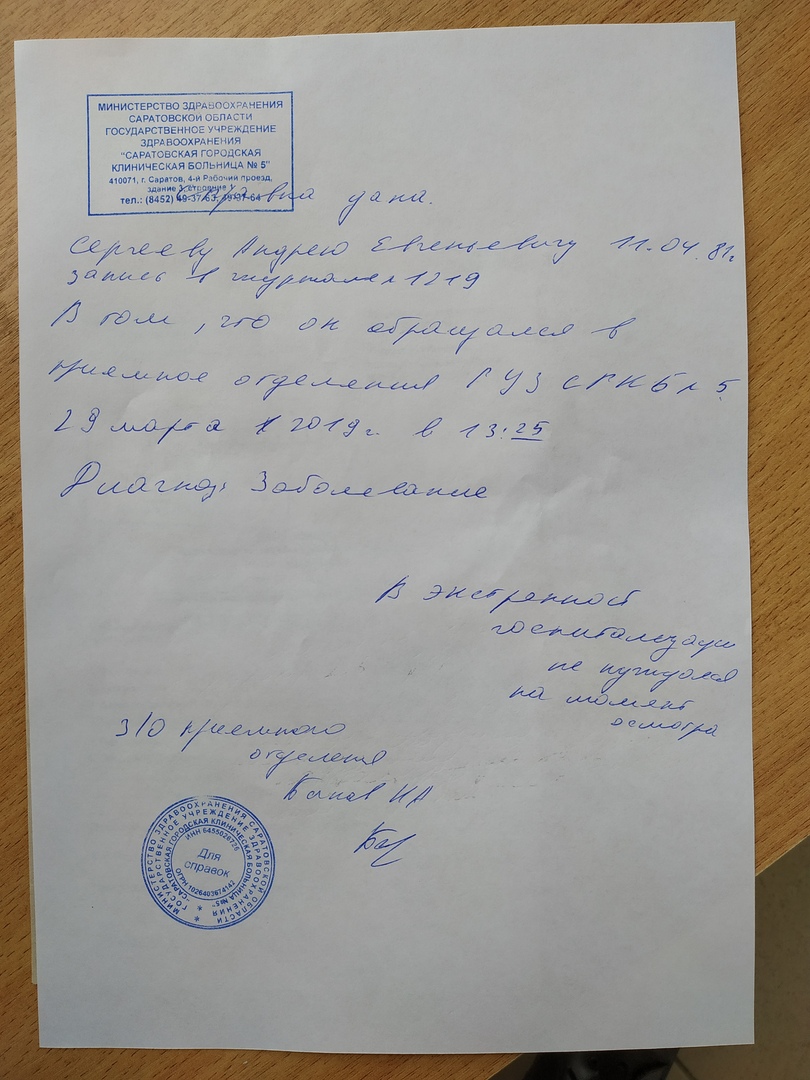 МИНИСТЕРСТВО ЗДРАВООХРАНЕНИЯ
САРАТОВСКОЙ ОБЛАСТИ
ГОСУДАРСТВЕННОЕ УЧРЕЖДЕНИЕ
ЗДРАВООХРАНЕНИЯ
"САРАТОВСКАЯ ГОРОДСКАЯ
КЛИНИЧЕСКАЯ БОЛЬНИЦА № 5"
410071, г. Саратов, 4-й Рабочий проезд,
здание 3, строение 1
тел.: (8452) 49-37-63, 49-37-64
Справка дана.
Сергееву Андрею Евгеньевичу 11.04.81г.
запись в журнале №1219
В том, что он обращался в
приемное отделения ГУЗ СГКБ №5
29 марта 2019г. в 13:25
Диагноз: Заболевание
В экстренной
госпитализации
не нуждался
на момент
осмотра
З/О приемного
отделения
НА
МИНИСТЕРСТВО ЗДРАВООХРАНЕНИЯ САРАТОВСКОЙ ОБЛАСТИ
ГОСУДАРСТВЕННОЕ УЧРЕЖДЕНИЕ ЗДРАВООХРАНЕНИЯ
"САРАТОВСКАЯ ГОРОДСКАЯ КЛИНИЧЕСКАЯ БОЛЬНИЦА №5"
ИНН
ОГРН
Для
справок